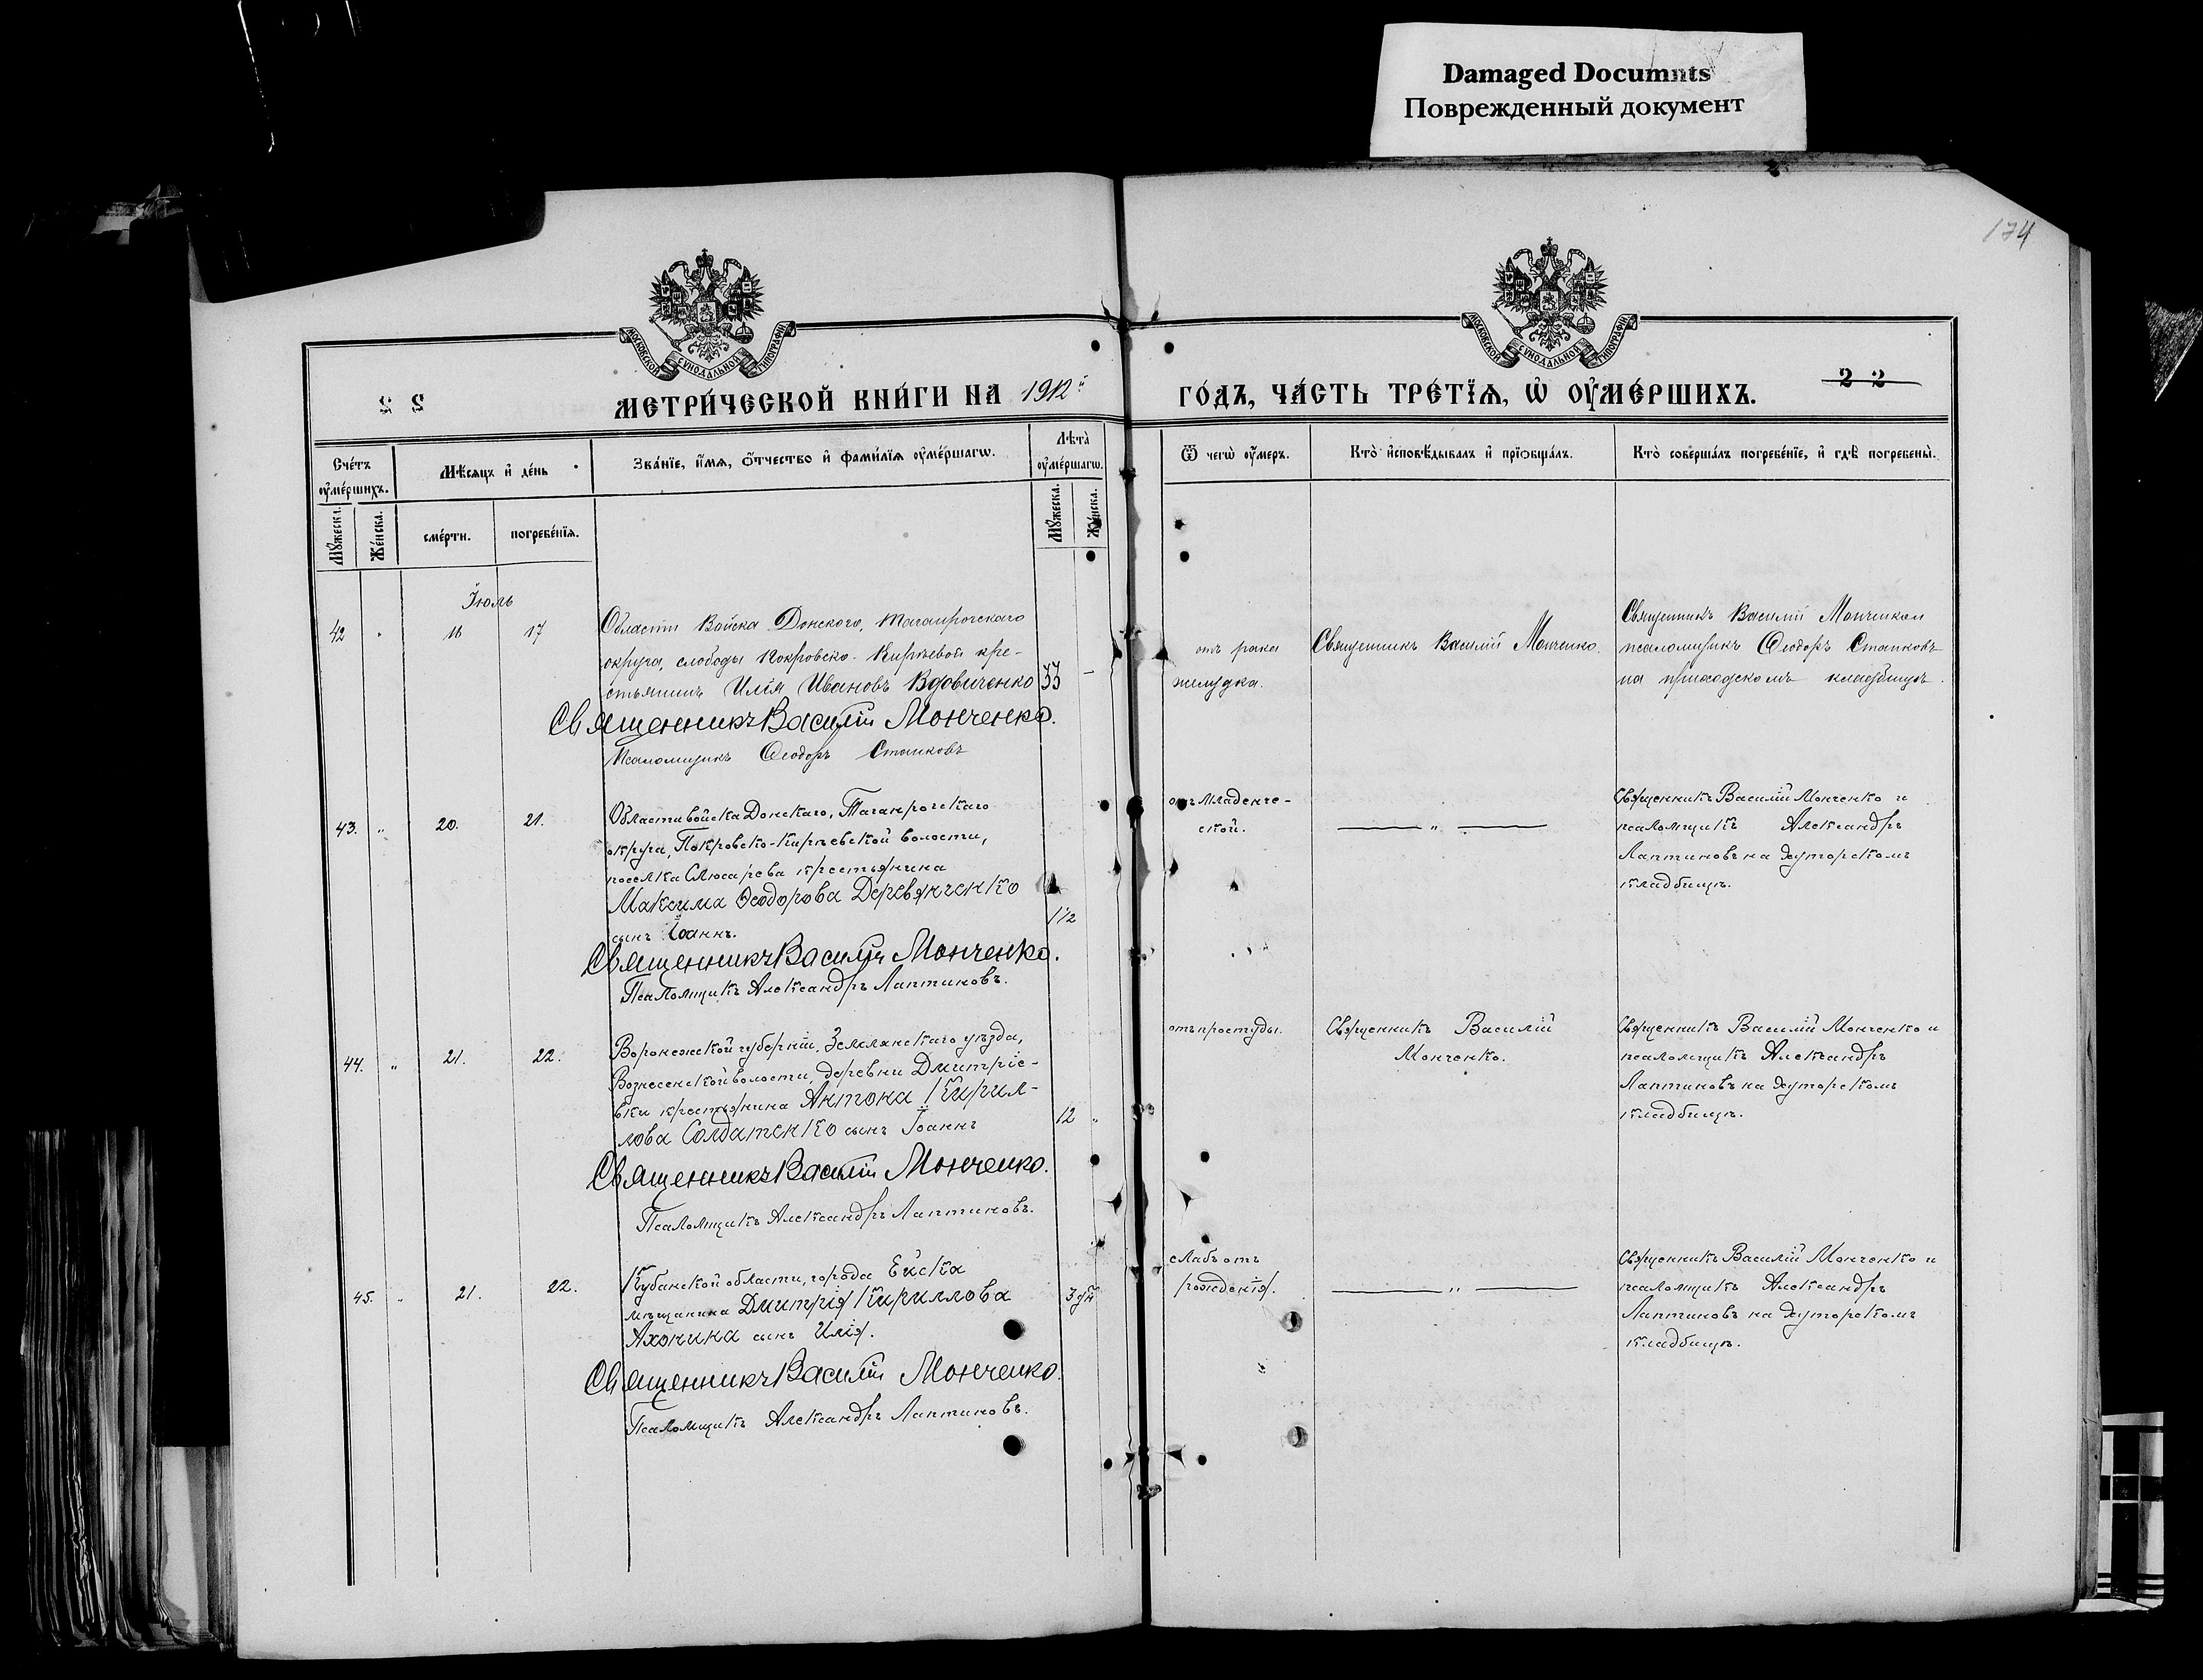 Damaged Documnts
Поврежденный документ
174
МОСКОВСКОЙ СѴНОДАЛЬНОЙ ТИПОГРАФІИ
МОСКОВСКОЙ СѴНОДАЛЬНОЙ ТИПОГРАФІИ
МЕТРИ́ЧЕСКОЙ КНИ́ГИ НА 1912й ГО́ДЪ, ЧА́СТЬ ТРЕ́ТЇѦ, Ѽ ОУМЕ́РШИХЪ.
22
Сче́тъ оуме́ршихъ.
Мѣсяцъ и҆ де́нь
Зва́нїе, и҆́мѧ, ѻ҆́тчество и҆ фами́лїѧ оумершагѡ.
Лѣта̀ оумершагѡ.
Ѿ чегѡ̀ оумеръ.
Кто̀ и҆сповѣ́дывалъ и҆ прїѻбща́лъ.
Кто̀ соверша́лъ погребе́нїе, и҆ гдѣ̀ погребены̀.
Мꙋжеска.
Же́нска.
сме́рти.
погребе́нїѧ.
Мꙋжеска.
Же́нска.
Іюль
42 " 16 17
Области Войска Донского, Таганрогскаго
округа, слободы Покровско-Кирѣевой кре-
стьянинъ Илія Ивановъ Вдовиченко 55 —
Священникъ Василій Монченко.
Псаломщикъ Ѳеодоръ Станковъ
отъ рака
желудка.
Священникъ Василій Монченко.
Священникъ Василій Монченко и
псаломщикъ Ѳеодоръ Станковъ
на приходскомъ кладбищѣ.
43. " 20. 21.
Области войска Донскаго, Таганрогскаго
округа, Покровско-Кирѣевской волости,
поселка Слюсарева крестьянина
Максима Ѳеодорова Деревянченко
сынъ Іоаннъ. 1 1/2
Священникъ Василій Монченко.
Псаломщикъ Александръ Лаптиновъ.
отъ младенче-
ской.
— " —
Священникъ Василій Монченко и
псаломщикъ Александръ
Лаптиновъ на хуторскомъ
кладбищѣ.
44. " 21. 22.
Воронежской губерніи, Землянскаго уѣзда,
Вознесенской волости, деревни Дмитріе-
вки крестьянина Антона Кирил-
лова Солдатенко сынъ Іоаннъ 12 "
Священникъ Василій Монченко.
Псаломщикъ Александръ Лаптиновъ.
отъ простуды.
Священникъ Василій
Монченко.
Священникъ Василій Монченко и
псаломщикъ Александръ
Лаптиновъ на хуторскомъ
кладбищѣ.
45. " 21. 22.
Кубанской области, города Ейска
мѣщанина Дмитрія Кириллова
Ахонина сынъ Илія. 3 дн
Священникъ Василій Монченко.
Псаломщикъ Александръ Лаптиновъ.
слабъ отъ
рожденія.
— " —
Священникъ Василій Монченко и
псаломщикъ Александръ
Лаптиновъ на хуторскомъ
кладбищѣ.